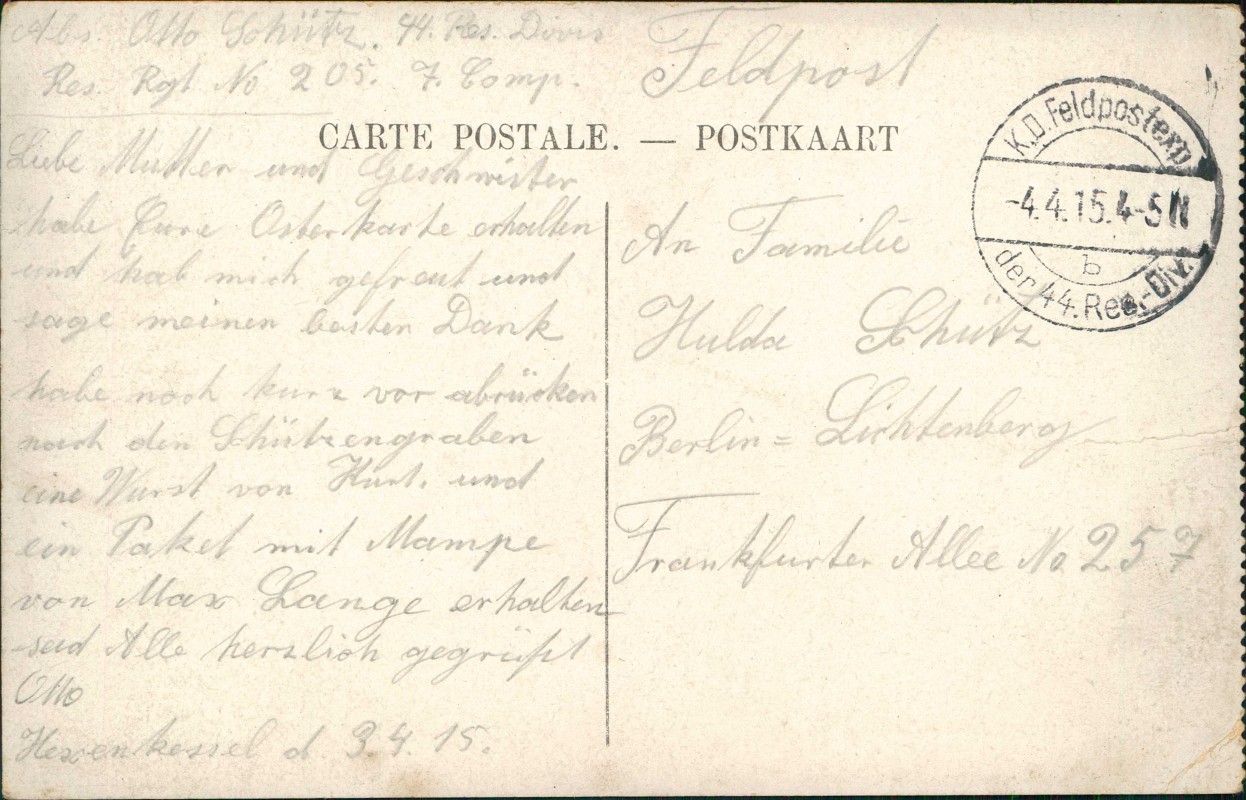 Abs. Otto Schütz. 44. Res. Divis
Res. Rgt No 205. 7. Comp.
Feldpost
CARTE POSTALE. — POSTKAART
K.D. Feldpostexp.
-4.4.15.4-5N
b
der 44. Res.-Div.
Liebe Mutter und Geschwister
habe Eure Osterkarte erhalten
und hab mich gefreut und
sage meinen besten Dank
habe noch kurz vor abrücken
nach den Schützengraben
eine Wurst von Kurt. und
ein Paket mit Mampe
von Max Lange erhalten
seid Alle herzlich gegrüßt
Otto
Hexenkessel d. 3.4.15.
An Familie
Hulda Schütz
Berlin=Lichtenberg
Frankfurter Allee No 257